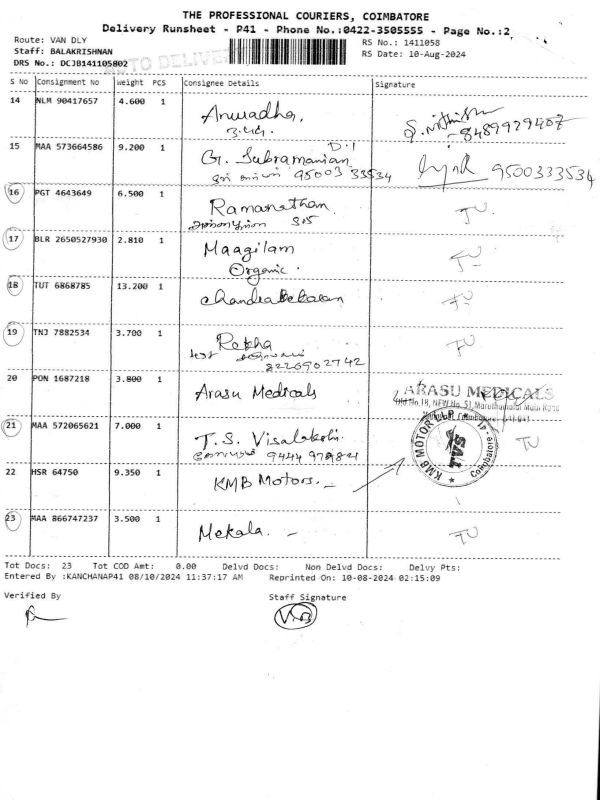 THE PROFESSIONAL COURIERS, COIMBATORE
Delivery Runsheet - P41 - Phone No.:0422-3505555 - Page No.:2
Route: VAN DLY
RS No.: 1411058
Staff: BALAKRISHNAN
RS Date: 10-Aug-2024
DRS No.: DCJB141105802
S No Consignment No Weight PCS Consignee Details Signature
14 NLM 90417657 4.600 1 Anuradha, 8489929407
15 MAA 573664586 9.200 1 G. Subramanian 95003 33534 9500333534
16 PGT 4643649 6.500 1 Ramanathan
17 BLR 2650527930 2.810 1 Maagilam
Organic.
18 TUT 6868785 13.200 1 Chandrasekaran
19 TNJ 7882534 3.700 1 Rekha
20 PON 1687218 3.800 1 Arasu Medicals ARASU MEDICALS
Old No.18, NEW No. 51, Maruthamalai Main Road
21 MAA 572065621 7.000 1 T.S. Visalakshi
22 HSR 64750 9.350 1 KMB Motors. KMB MOTOR
23 MAA 866747237 3.500 1 Mekala.
Tot Docs: 23 Tot COD Amt: 0.00 Delvd Docs: Non Delvd Docs: Delvy Pts:
Entered By :KANCHANAP41 08/10/2024 11:37:17 AM Reprinted On: 10-08-2024 02:15:09
Verified By Staff Signature